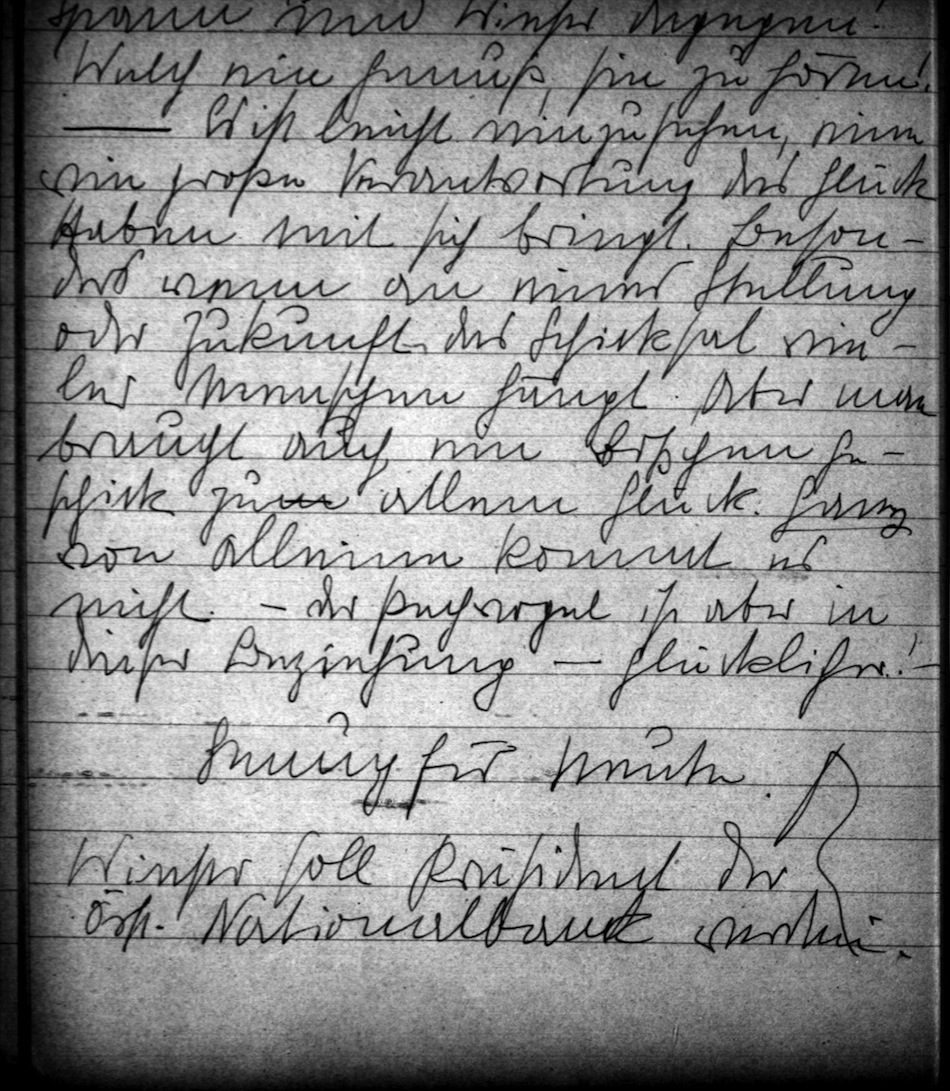 Spann und Wieser dagegen!
Welch ein Genuß, sie zu hören!
— Ist leicht einzusehen,
eine große Verantwortung das Glück
Haben mit sich bringt. Beson-
ders wenn an einer Stellung
oder Zukunft das Schicksal vie-
ler Menschen hängt. Aber man
braucht auch ein bißchen Ge-
schick zu allem Glück. Ganz
von Alleine kommt es
nicht. – der Pechvogel ist aber in
dieser Beziehung — glücklicher! –
Genug für Heute.
Wieser soll Präsident der
Öst. Nationalbank werden.